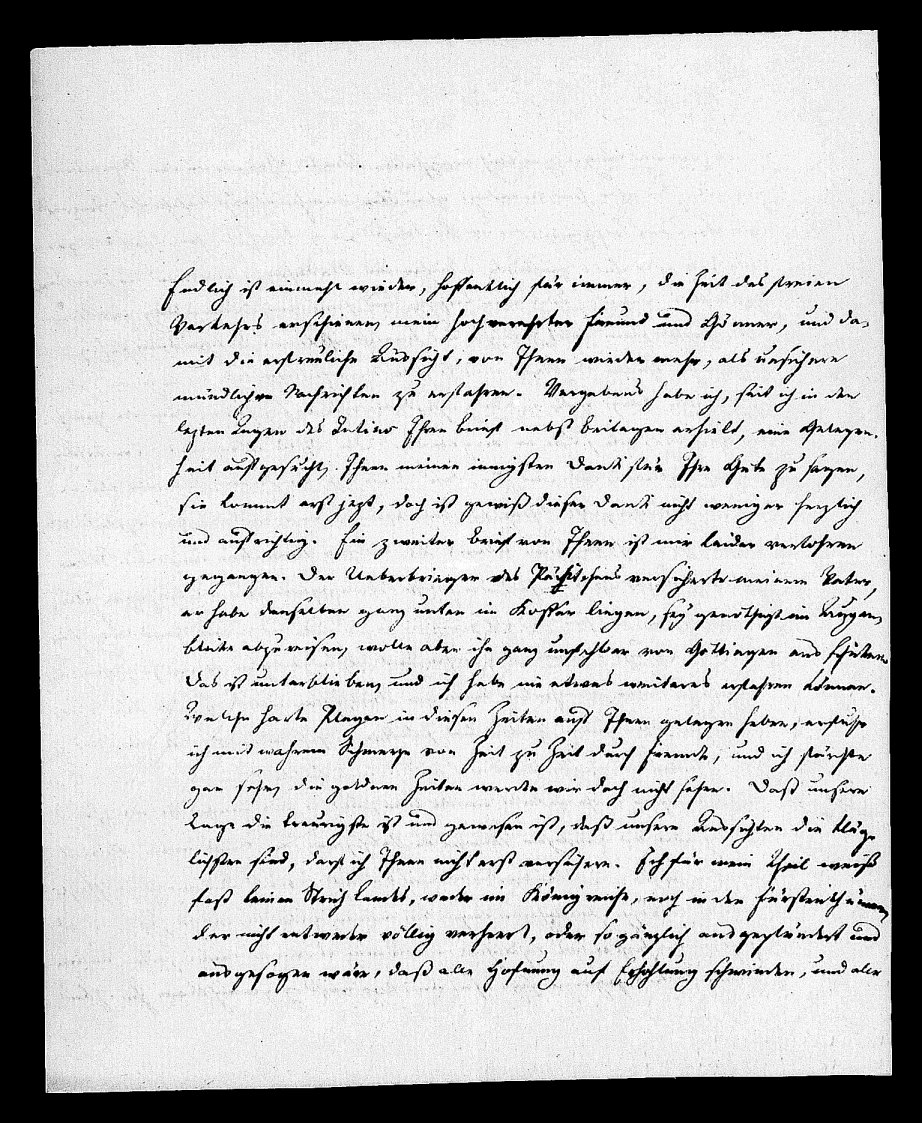 Endlich ist einmahl wieder, hoffentlich für immer, die Zeit des freien
Verkehrs erschienen, mein hochverehrter Freund und Gönner, und da-
mit die erfreuliche Aussicht, von Ihnen wieder mehr, als unsichere
mündliche Nachrichten zu erfahren. Vergebens habe ich, seit ich in den
lezten Tagen des Ihren Brief nebst Beilagen erhielt, eine Gelegen-
heit aufgesucht, Ihnen meinen innigsten Dank für Ihre Güte zu sagen,
sie kommt erst jezt, doch ist gewiß dieser Dank nicht weniger herzlich
und aufrichtig. Ein zweiter Brief von Ihnen ist mir leider verlohren
gegangen. Der Ueberbringer des Päckchens versicherte meinem Vater,
er habe denselben ganz unten im Koffer liegen, sey genöthigt im Augen-
blicke abzureisen, wolle aber ihn ganz unfehlbar von Göttingen aus schicken.
Das ist unterblieben, und ich habe nie etwas weiteres erfahren können.
Welche harte Plagen in diesen Zeiten auf Ihnen gelegen haben, erfuhr
ich mit wahrem Schmerze von Zeit zu Zeit durch Fremde, und ich fürchte
gar sehr, die goldnen Zeiten werden wir doch nicht sehen. Daß unsere
Lage die traurigste ist und gewesen ist, daß unsere Aussichten die kläg-
lichsten sind, darf ich Ihnen nicht erst versichern. Ich für mein Theil weiß
fast keinen Strich Landes, weder im Königreiche, noch in den Fürstenthümern,
der nicht entweder völlig verheert, oder so gänzlich ausgeplündert und
ausgesogen wäre, daß alle Hofnung auf Erhohlung schwinden, und alle